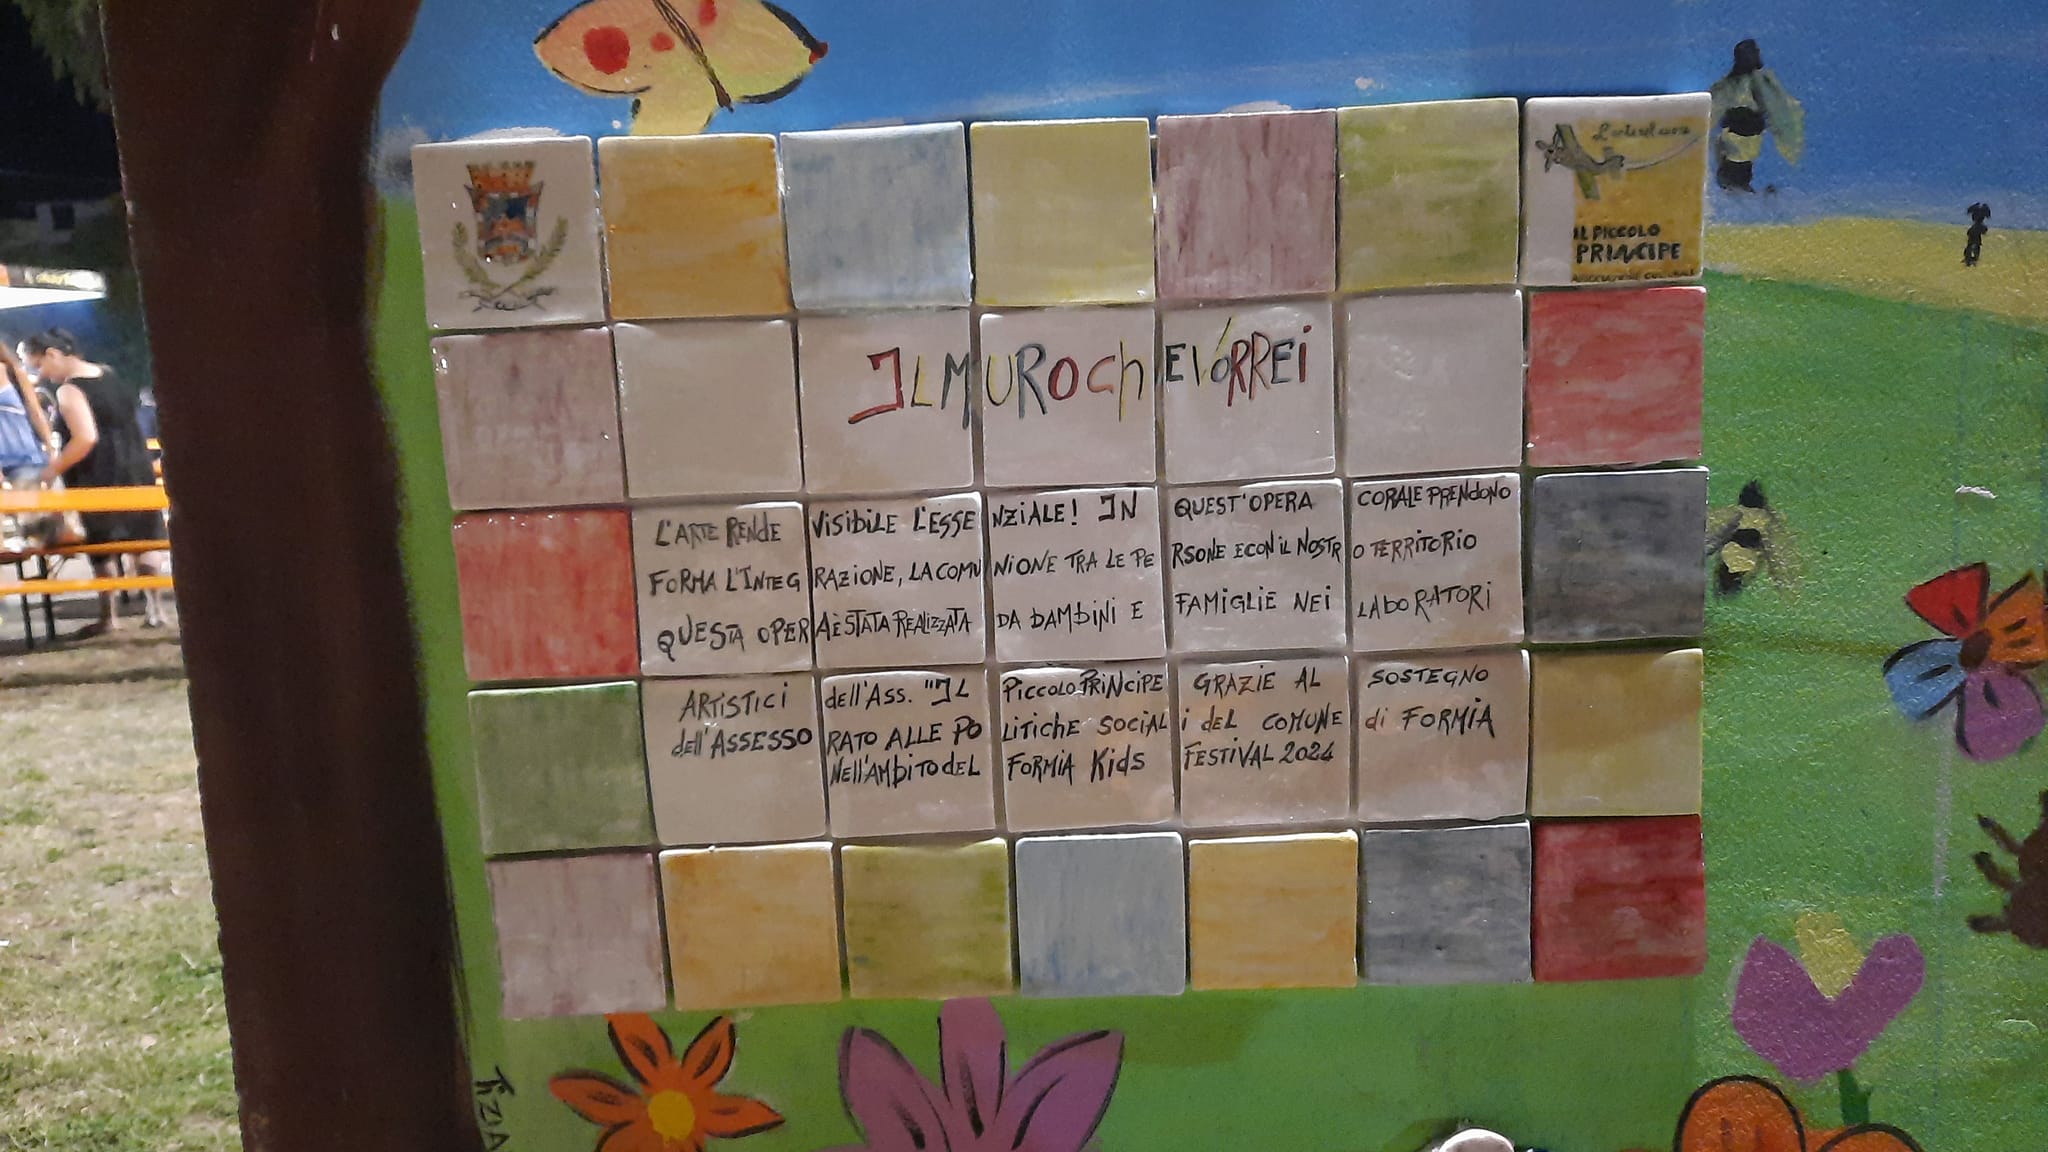 L'arte nel cuore
IL PICCOLO
PRINCIPE
ASSOCIAZIONE CULTURALE
IL MURO CHE VORREI
L'ARTE RENDE VISIBILE L'ESSENZIALE! IN QUEST'OPERA CORALE PRENDONO
FORMA L'INTEGRAZIONE, LA COMUNIONE TRA LE PERSONE E CON IL NOSTRO TERRITORIO
QUESTA OPERA È STATA REALIZZATA DA BAMBINI E FAMIGLIE NEI LABORATORI
ARTISTICI dell'ASS. "IL PICCOLO PRINCIPE GRAZIE AL SOSTEGNO
dell'ASSESSORATO ALLE POLITICHE SOCIALI del COMUNE di FORMIA
NELL'AMBITO DEL FORMIA Kids FESTIVAL 2024
TIZIA